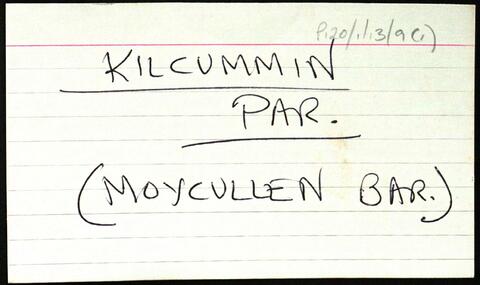 P120/1/13/9(1)
KILCUMMIN
PAR.
(MOYCULLEN BAR.)